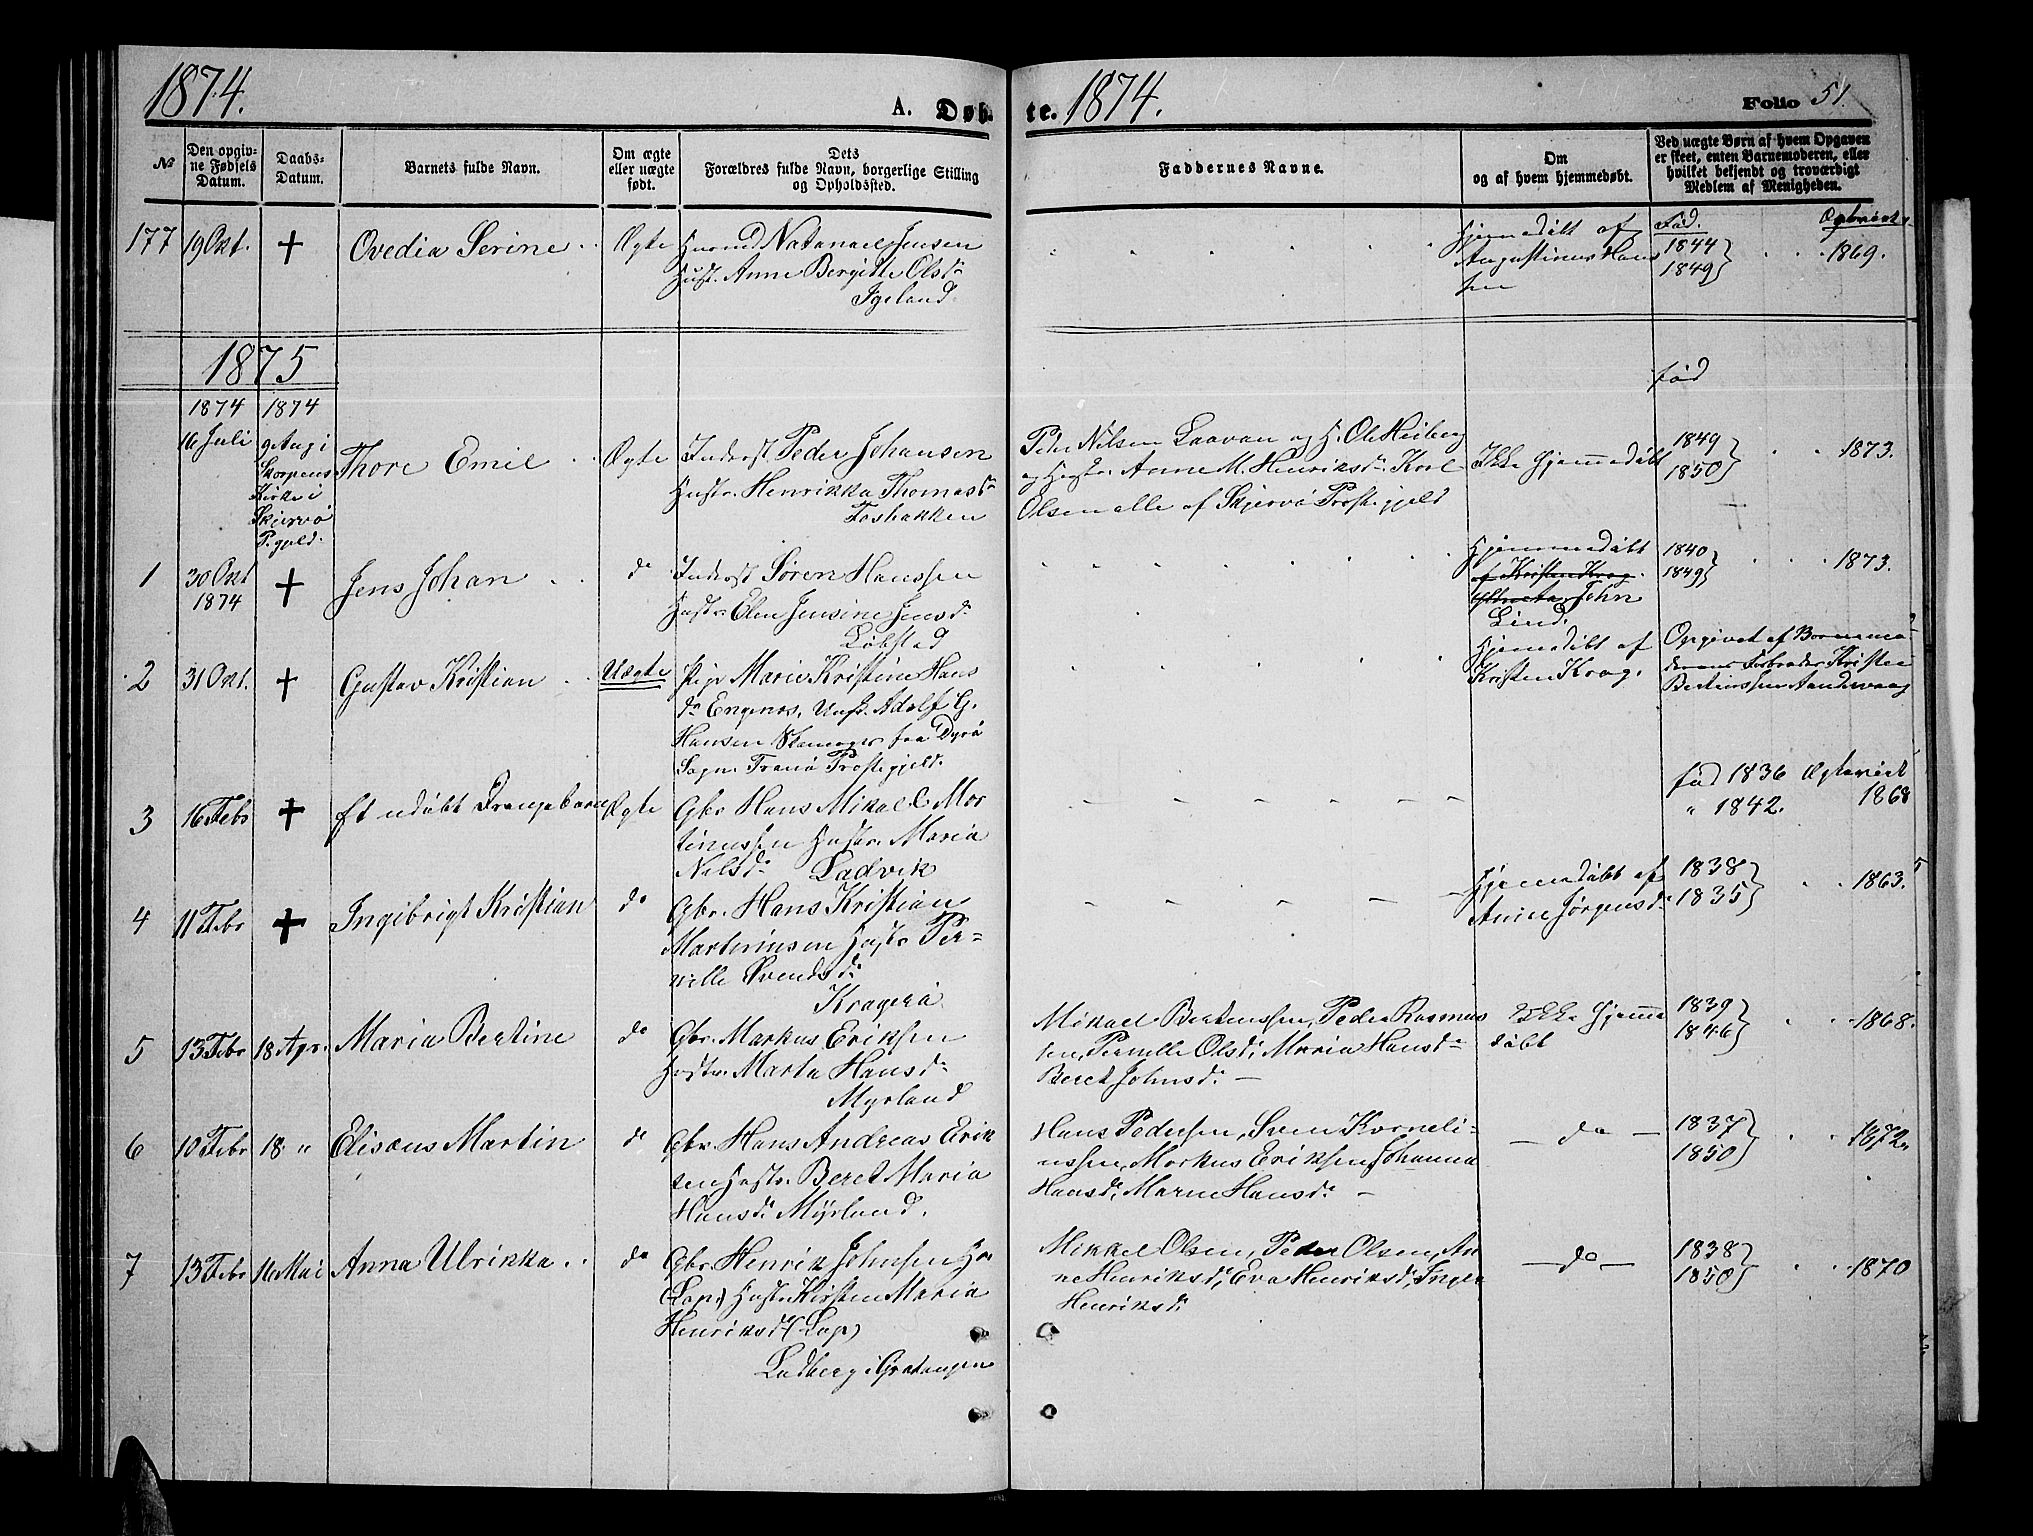 1874.
A. Døb-
te. 1874.
Folio 51.
No
Den opgiv-
ne Fødsels
Datum.
Daabs-
Datum.
Barnets fulde Navn.
Om ægte
eller uægte
født.
Dets
Forældres fulde Navn, borgerlige Stilling
og Opholdssted.
Faddernes Navne.
Om
og af hvem hjemmedøbt.
Ved uægte Børn af hvem Opgaven
er skeet, enten Barnemoderen, eller
hvilket bekjendt og troværdigt
Medlem af Menigheden.
177 19 Okt. + Ovedia Serine Ægte
Natanael Jensen
Hust. Anne Bergitte Olsd.
Igeland.
Hjemmedøbt af
Augustinus Hans
sen
Fød.
1844
1849
1869.
1875
1874 1874
16 Juli
9 Aug i
Skorpens
Kirke i
Skjervø
P.gjeld.
Thore Emil Ægte
Inderst Peder Johansen
Hustr. Henrikka Thomasd.
Foshakken
Peder Nilsen Laavan og H. Ole Heiberg
og Hustr. Anne M. Henriksd. Karl
Olsen alle af Skjervø Prestegjeld
Ikke hjemmedøbt
fød
1849
1850
1873.
1 30 Okt
1874
+ Jens Johan do
Inderst Søren Hanssen
Hustr. Elen Jensine Jensd.
Løbstad
Hjemmedøbt
af Kristen Krog
John
Lind.
1840
1849
1873.
2 31 Okt. + Gustav Kristian Uægte
Pige Marie Kristine Hans
d. Engenes, Ungk. Adolf G.
Hansen fra Dyrø
Sogn Tranø Prestegjeld.
Hjemmedøbt af
Kristen Krog.
Opgivet af Barnemo-
derens Forbroder Kristen
Berteussen Aandervaag
3 16 Febr + Et udøbt Drengebarn Ægte
Gbr. Hans Mikal C. Mor
tinussen Hustr. Maria
Nilsd. Ladvik
fød 1836 Ægteviet
" 1842. 1868
4 11 Febr + Ingebrigt Kristian do
Gbr. Hans Kristian
Martinusen Hustr. Per-
nille Svendsd.
Kragerø
Hjemmedøbt af
Anne Jørgensd.
1838
1835
1863.
5 13 Febr 18 Apr. Maria Bertine do
Gbr. Markus Eriksen
Hustr. Marta Hansd.
Myrland
Mikael Bertenssen, Peder Rasmus
sen, Pernille Olsd. Maria Hansd.
Beret Johnsd. —
Ikke hjemme
døbt
1839
1846
1868.
6 10 Febr 18 " Elisæus Martin do
Gbr. Hans Andreas Erik
sen Hustr. Beret Maria
Hansd. Myrland.
Hans Pedersen, Sven Korneli-
ussen, Markus Eriksen, Johanna
Hansd. Marie Hansd. —
— do —
1837
1850
1872.
7 13 Febr 16 Mai Anna Ulrikka do
Gbr. Henrik Johnsen
(Lap) Hustr. Kirsten Maria
Henriksd. (Lap)
Ladberg i Gratangen
Mikkel Olsen, Peder Olsen, An
ne Henriksd. Eva Henriksd. Inger
Henriksd.
— do —
1838
1850
1870